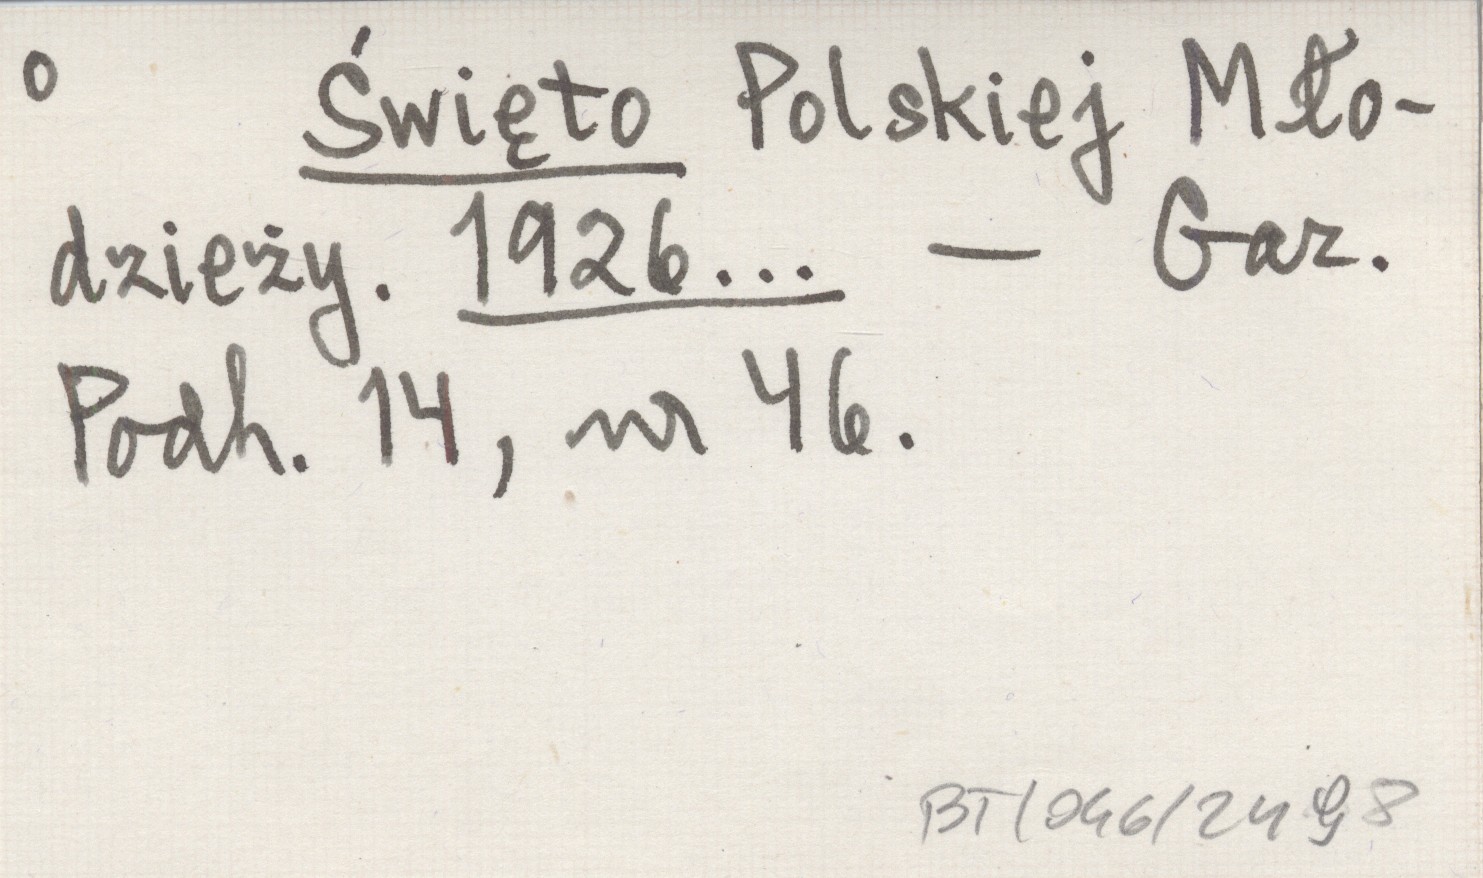 o Święto Polskiej Mło-
dzieży. 1926... — Gaz.
Podh. 14, nr 46.
BT/046/24 98